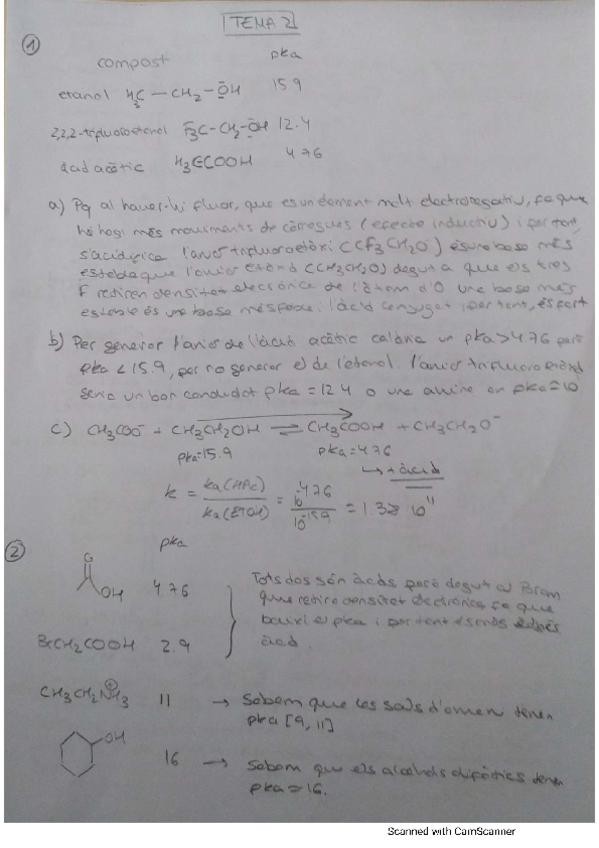 TEMA 2
①
compost pka
etanol H3C — CH2 – OH 15.9
2,2,2-trifluoroetanol F3C – CH2 – OH 12.4
àcid acètic H3CCOOH 4.76
a) Pq al haver-hi fluor, que es un element molt electronegatiu, fa que
hi hagi més moviments de càrregues (efecte inductiu) i per tant
s'acidifica l'anió trifluoroetòxi (CF3CH2O⁻) és una base més
estable que l'anió etòxid (CH3CH2O) degut a que els tres
F retiren densitat electrònica de l'àtom d'O una base més
estable és una base més feble. l'àcid conjugat, per tant, és fort
b) Per generar l'anió de l'àcid acètic caldria un pka > 4.76 però
pka < 15.9, per no generar el de l'etanol. l'anió trifluoroetòxid
seria un bon candidat pka = 12.4 o una amina on pka = 10
c) CH3COO⁻ + CH3CH2OH ⇌ CH3COOH + CH3CH2O⁻
pka=15.9 pka=4.76
↳ + àcid
k = ka(HAc) / ka(EtOH) = 10^-4.76 / 10^-15.9 = 1.38 10^11
②
pka
OH 4.76
Tots dos són àcids però degut al Brom
que retira densitat electrònica fa que
baixi el pka i per tant és més
àcid.
BrCH2COOH 2.9
CH3CH2NH3⊕ 11 → Sabem que les sals d'amoni tenen
pka [9, 11]
OH 16 → Sabem que els alcohols alifàtics tenen
pka = 16.
Scanned with CamScanner